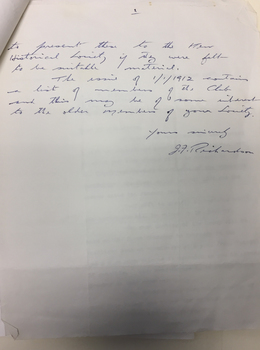 2
to present them to the Kew
Historical Society if they were felt
to be suitable material.
The issue of 1/1/1912 contains
a list of members of the Club
and this may be of some interest
to the older members of your Society.
Yours sincerely
J.F. Richardson